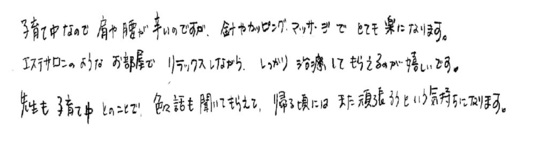 子育て中なので 肩や腰が辛いのですが、針やカッピング、マッサージで とても楽になります。
エステサロンのような お部屋で リラックスしながら、しっかり治療してもらえるのが嬉しいです。
先生も子育て中とのことで、色々話も聞いてもらえて、帰る頃には また頑張ろうという気持ちになります。